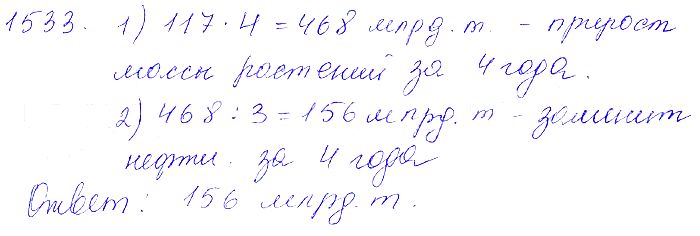 1533. 1) 117 · 4 = 468 млрд. т. - прирост
массы растений за 4 года.
2) 468 : 3 = 156 млрд. т - заменит
нефти. за 4 года
Ответ: 156 млрд. т.